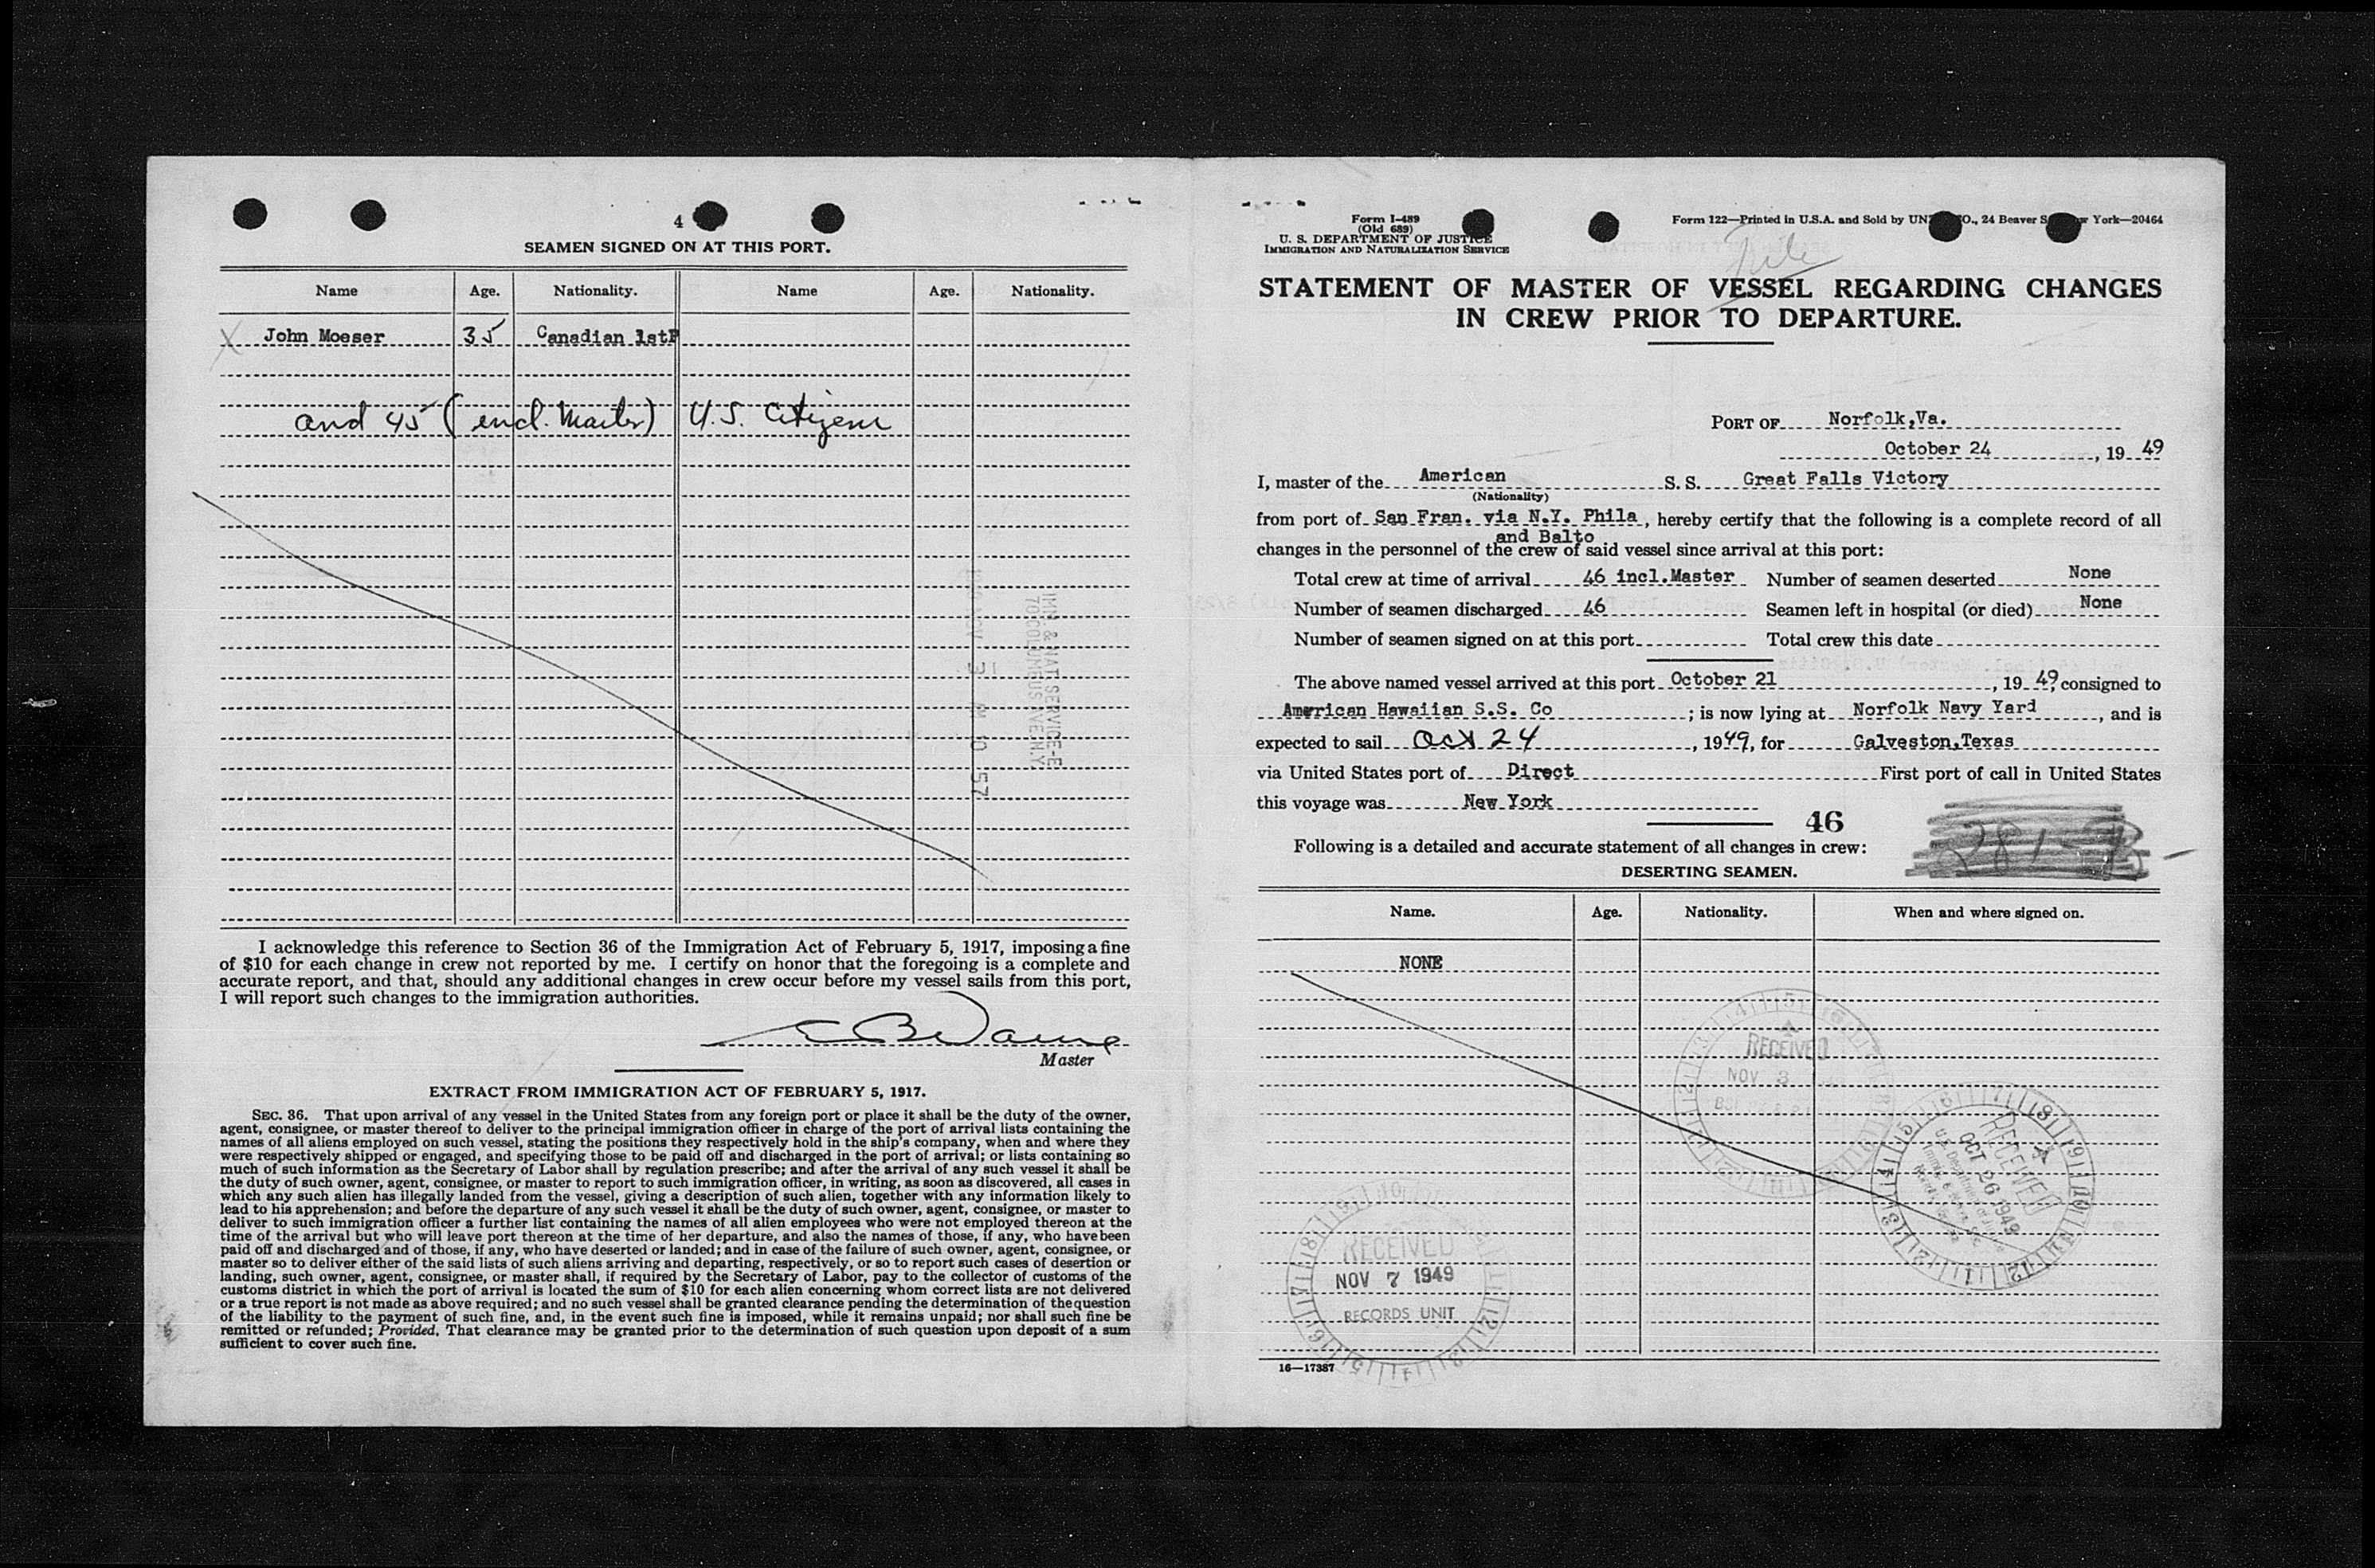 4
SEAMEN SIGNED ON AT THIS PORT.
Name Age. Nationality. Name Age. Nationality.
X John Moeser 35 Canadian 1stP
and 45 (incl. Master) U.S. Citizens
IMM & NAT SERVICE-E
70 COLUMBUS AVE N.Y.
I acknowledge this reference to Section 36 of the Immigration Act of February 5, 1917, imposing a fine
of $10 for each change in crew not reported by me. I certify on honor that the foregoing is a complete and
accurate report, and that, should any additional changes in crew occur before my vessel sails from this port,
I will report such changes to the immigration authorities.
Master
EXTRACT FROM IMMIGRATION ACT OF FEBRUARY 5, 1917.
SEC. 36. That upon arrival of any vessel in the United States from any foreign port or place it shall be the duty of the owner,
agent, consignee, or master thereof to deliver to the principal immigration officer in charge of the port of arrival lists containing the
names of all aliens employed on such vessel, stating the positions they respectively hold in the ship's company, when and where they
were respectively shipped or engaged, and specifying those to be paid off and discharged in the port of arrival; or lists containing so
much of such information as the Secretary of Labor shall by regulation prescribe; and after the arrival of any such vessel it shall be
the duty of such owner, agent, consignee, or master to report to such immigration officer, in writing, as soon as discovered, all cases in
which any such alien has illegally landed from the vessel, giving a description of such alien, together with any information likely to
lead to his apprehension; and before the departure of any such vessel it shall be the duty of such owner, agent, consignee, or master to
deliver to such immigration officer a further list containing the names of all alien employees who were not employed thereon at the
time of the arrival but who will leave port thereon at the time of her departure, and also the names of those, if any, who have been
paid off and discharged and of those, if any, who have deserted or landed; and in case of the failure of such owner, agent, consignee, or
master so to deliver either of the said lists of such aliens arriving and departing, respectively, or so to report such cases of desertion or
landing, such owner, agent, consignee, or master shall, if required by the Secretary of Labor, pay to the collector of customs of the
customs district in which the port of arrival is located the sum of $10 for each alien concerning whom correct lists are not delivered
or a true report is not made as above required; and no such vessel shall be granted clearance pending the determination of the question
of the liability to the payment of such fine, and, in the event such fine is imposed, while it remains unpaid; nor shall such fine be
remitted or refunded; Provided, That clearance may be granted prior to the determination of such question upon deposit of a sum
sufficient to cover such fine.
Form I-489
(Old 689)
U. S. DEPARTMENT OF JUSTICE
IMMIGRATION AND NATURALIZATION SERVICE
Form 122—Printed in U.S.A. and Sold by UN O., 24 Beaver S w York—20464
File
STATEMENT OF MASTER OF VESSEL REGARDING CHANGES
IN CREW PRIOR TO DEPARTURE.
PORT OF Norfolk,Va.
October 24, 19 49
I, master of the American S. S. Great Falls Victory
(Nationality)
from port of San Fran. via N.Y. Phila, hereby certify that the following is a complete record of all
and Balto
changes in the personnel of the crew of said vessel since arrival at this port:
Total crew at time of arrival 46 incl.Master Number of seamen deserted None
Number of seamen discharged 46 Seamen left in hospital (or died) None
Number of seamen signed on at this port Total crew this date
The above named vessel arrived at this port October 21, 19 49, consigned to
American Hawaiian S.S. Co ; is now lying at Norfolk Navy Yard, and is
expected to sail Oct 24, 1949, for Galveston,Texas
via United States port of Direct First port of call in United States
this voyage was New York
46
Following is a detailed and accurate statement of all changes in crew:
DESERTING SEAMEN.
Name. Age. Nationality. When and where signed on.
NONE
RECEIVED
NOV 3
RECEIVED
OCT 26 1949
RECEIVED
NOV 7 1949
RECORDS UNIT
16—17387